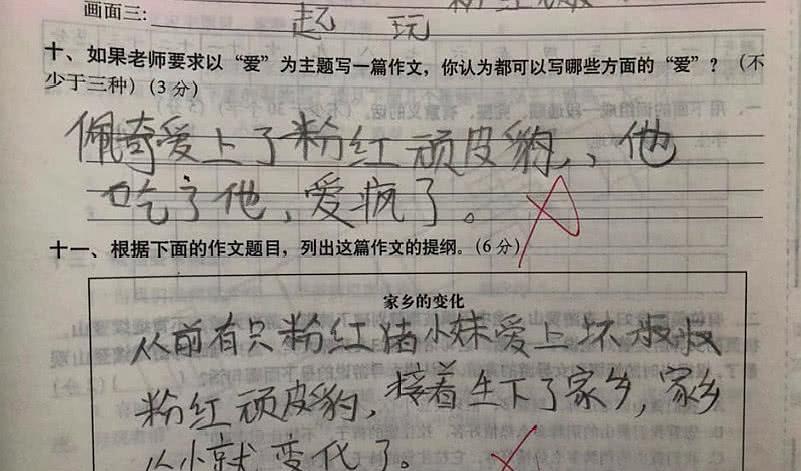 画面三:
起 玩
十、如果老师要求以“爱”为主题写一篇作文，你认为都可以写哪些方面的“爱”？（不
少于三种）(3分)
佩奇爱上了粉红顽皮豹，他
吃了他，爱疯了。
十一、根据下面的作文题目，列出这篇作文的提纲。(6分)
家乡的变化
从前有只粉红猪小妹爱上坏叔叔
粉红顽皮豹，接着生下了家乡，家乡
从小就变化了。